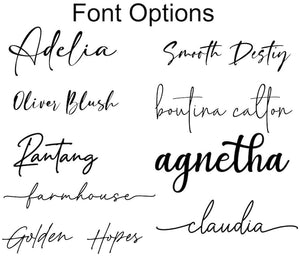 Font Options
Adelia
Smooth Destiy
Oliver Blush
boutina calton
Rantang
agnetha
farmhouse
claudia
Golden Hopes